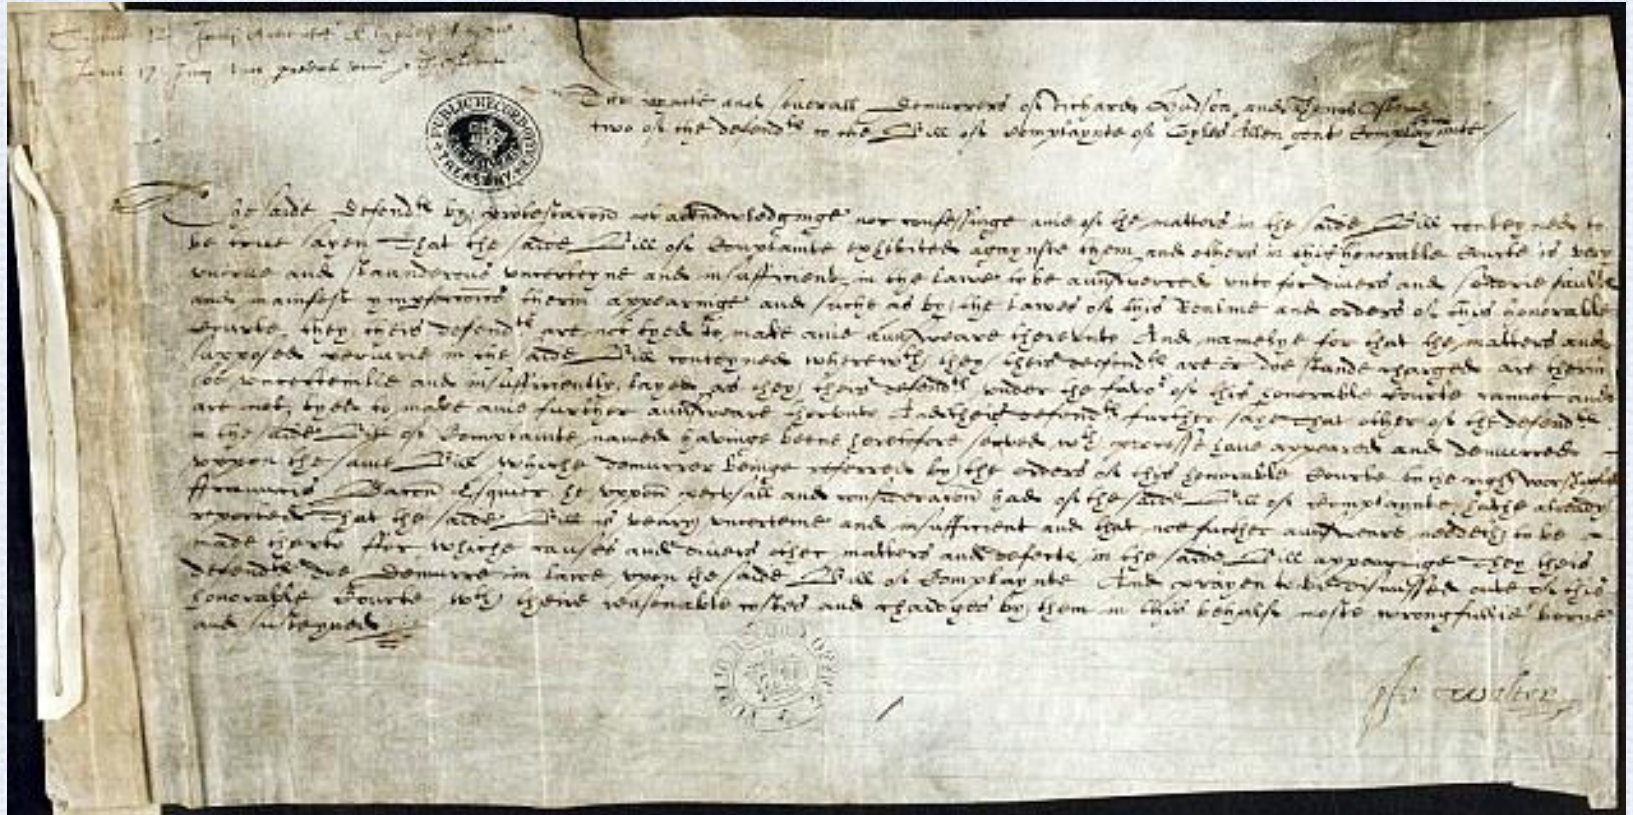 The and severall Demurrers of Richard Hudson and Thomas Osborne
two of the defendtes to the Bill of Complaynte of Gyles Allen gent Complaynante
PUBLIC RECORD OFFICE
TREASURY
The saide Defendtes by protestacon not acknowledginge nor confessinge anie of the matters in the saide Bill conteyned to
be true sayen That the saide Bill of Complainte exhibited agaynste them and others in this honorable Courte is very
untrue and slaunderous uncerteyne and insufficient in the lawe to be aunswered unto for divers and faultes
and manifest ymperfeccons therin appearinge and suche as by the lawes of this Realme and orders of this honorable
Courte they theis defendtes are not tyed to make anie aunsweare therunto And namelye for that the matters and
supposed periurie in the saide Bill conteyned wherewth they theis defendtes are or doe stande charged are therin
soe and insufficiently layed as they theis defendtes under the favor of this honorable Courte cannot and
are not tyed to make anie further aunsweare therunto And theis defendtes further saye That other of the defendtes
in the saide Bill of Complainte named havinge beene heretofore served wth processe have appeared and demurred
uppon the same Bill whiche demurrer beinge referred by the orders of this honorable Courte to the right worshipfull
Frauncis Bacon Esquier he uppon perusall and consideracon had of the saide Bill of Complaynte hathe already
reported That the saide Bill is veary uncerteine and insufficient and that noe further aunsweare needeth to be
made therto For whiche causes and divers other matters and defectes in the saide Bill appearinge They theis
defendtes doe Demurre in lawe upon the saide Bill of Complaynte And prayen to be dismissed oute of this
honorable Courte wth theire reasonable costes and chardges by them in this behalfe moste wrongfullie borne
and susteyned
Jo Walter